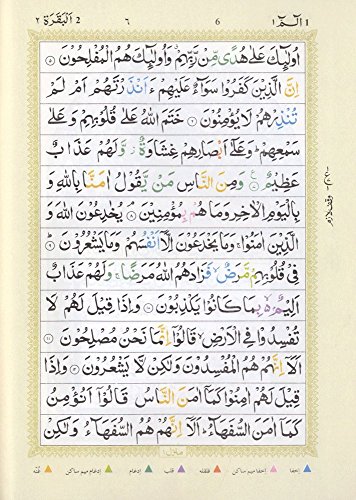 2 البقرة ٢
٦
6
1 الٓمّٓ ١
اُولٰٓئِكَ عَلٰى هُدًى مِّنْ رَّبِّهِمْ وَاُولٰٓئِكَ هُمُ الْمُفْلِحُوْنَ ۝٥
اِنَّ الَّذِيْنَ كَفَرُوْا سَوَآءٌ عَلَيْهِمْ ءَاَنْذَرْتَهُمْ اَمْ لَمْ
تُنْذِرْهُمْ لَا يُؤْمِنُوْنَ ۝٦ خَتَمَ اللّٰهُ عَلٰى قُلُوْبِهِمْ وَعَلٰى
سَمْعِهِمْ ؕ وَعَلٰٓى اَبْصَارِهِمْ غِشَاوَةٌ ؗ وَّلَهُمْ عَذَابٌ
عَظِيْمٌ ۝٧ وَمِنَ النَّاسِ مَنْ يَّقُوْلُ اٰمَنَّا بِاللّٰهِ وَ
بِالْيَوْمِ الْاٰخِرِ وَمَا هُمْ بِمُؤْمِنِيْنَ ۝٨ يُخٰدِعُوْنَ اللّٰهَ وَ
الَّذِيْنَ اٰمَنُوْا ۚ وَمَا يَخْدَعُوْنَ اِلَّآ اَنْفُسَهُمْ وَمَا يَشْعُرُوْنَ ۝٩
فِيْ قُلُوْبِهِمْ مَّرَضٌ ۙ فَزَادَهُمُ اللّٰهُ مَرَضًا ۚ وَلَهُمْ عَذَابٌ
اَلِيْمٌۢ ۙ بِمَا كَانُوْا يَكْذِبُوْنَ ۝١٠ وَاِذَا قِيْلَ لَهُمْ لَا
تُفْسِدُوْا فِي الْاَرْضِ ۙ قَالُوْٓا اِنَّمَا نَحْنُ مُصْلِحُوْنَ ۝١١
اَلَآ اِنَّهُمْ هُمُ الْمُفْسِدُوْنَ وَلٰكِنْ لَّا يَشْعُرُوْنَ ۝١٢ وَاِذَا
قِيْلَ لَهُمْ اٰمِنُوْا كَمَآ اٰمَنَ النَّاسُ قَالُوْٓا اَنُؤْمِنُ
كَمَآ اٰمَنَ السُّفَهَآءُ ؕ اَلَآ اِنَّهُمْ هُمُ السُّفَهَآءُ وَلٰكِنْ
وقف لازم
منزل ١
اخفا
اخفا میم ساکن
قلقلہ
قلب
ادغام
ادغام میم ساکن
غنّہ